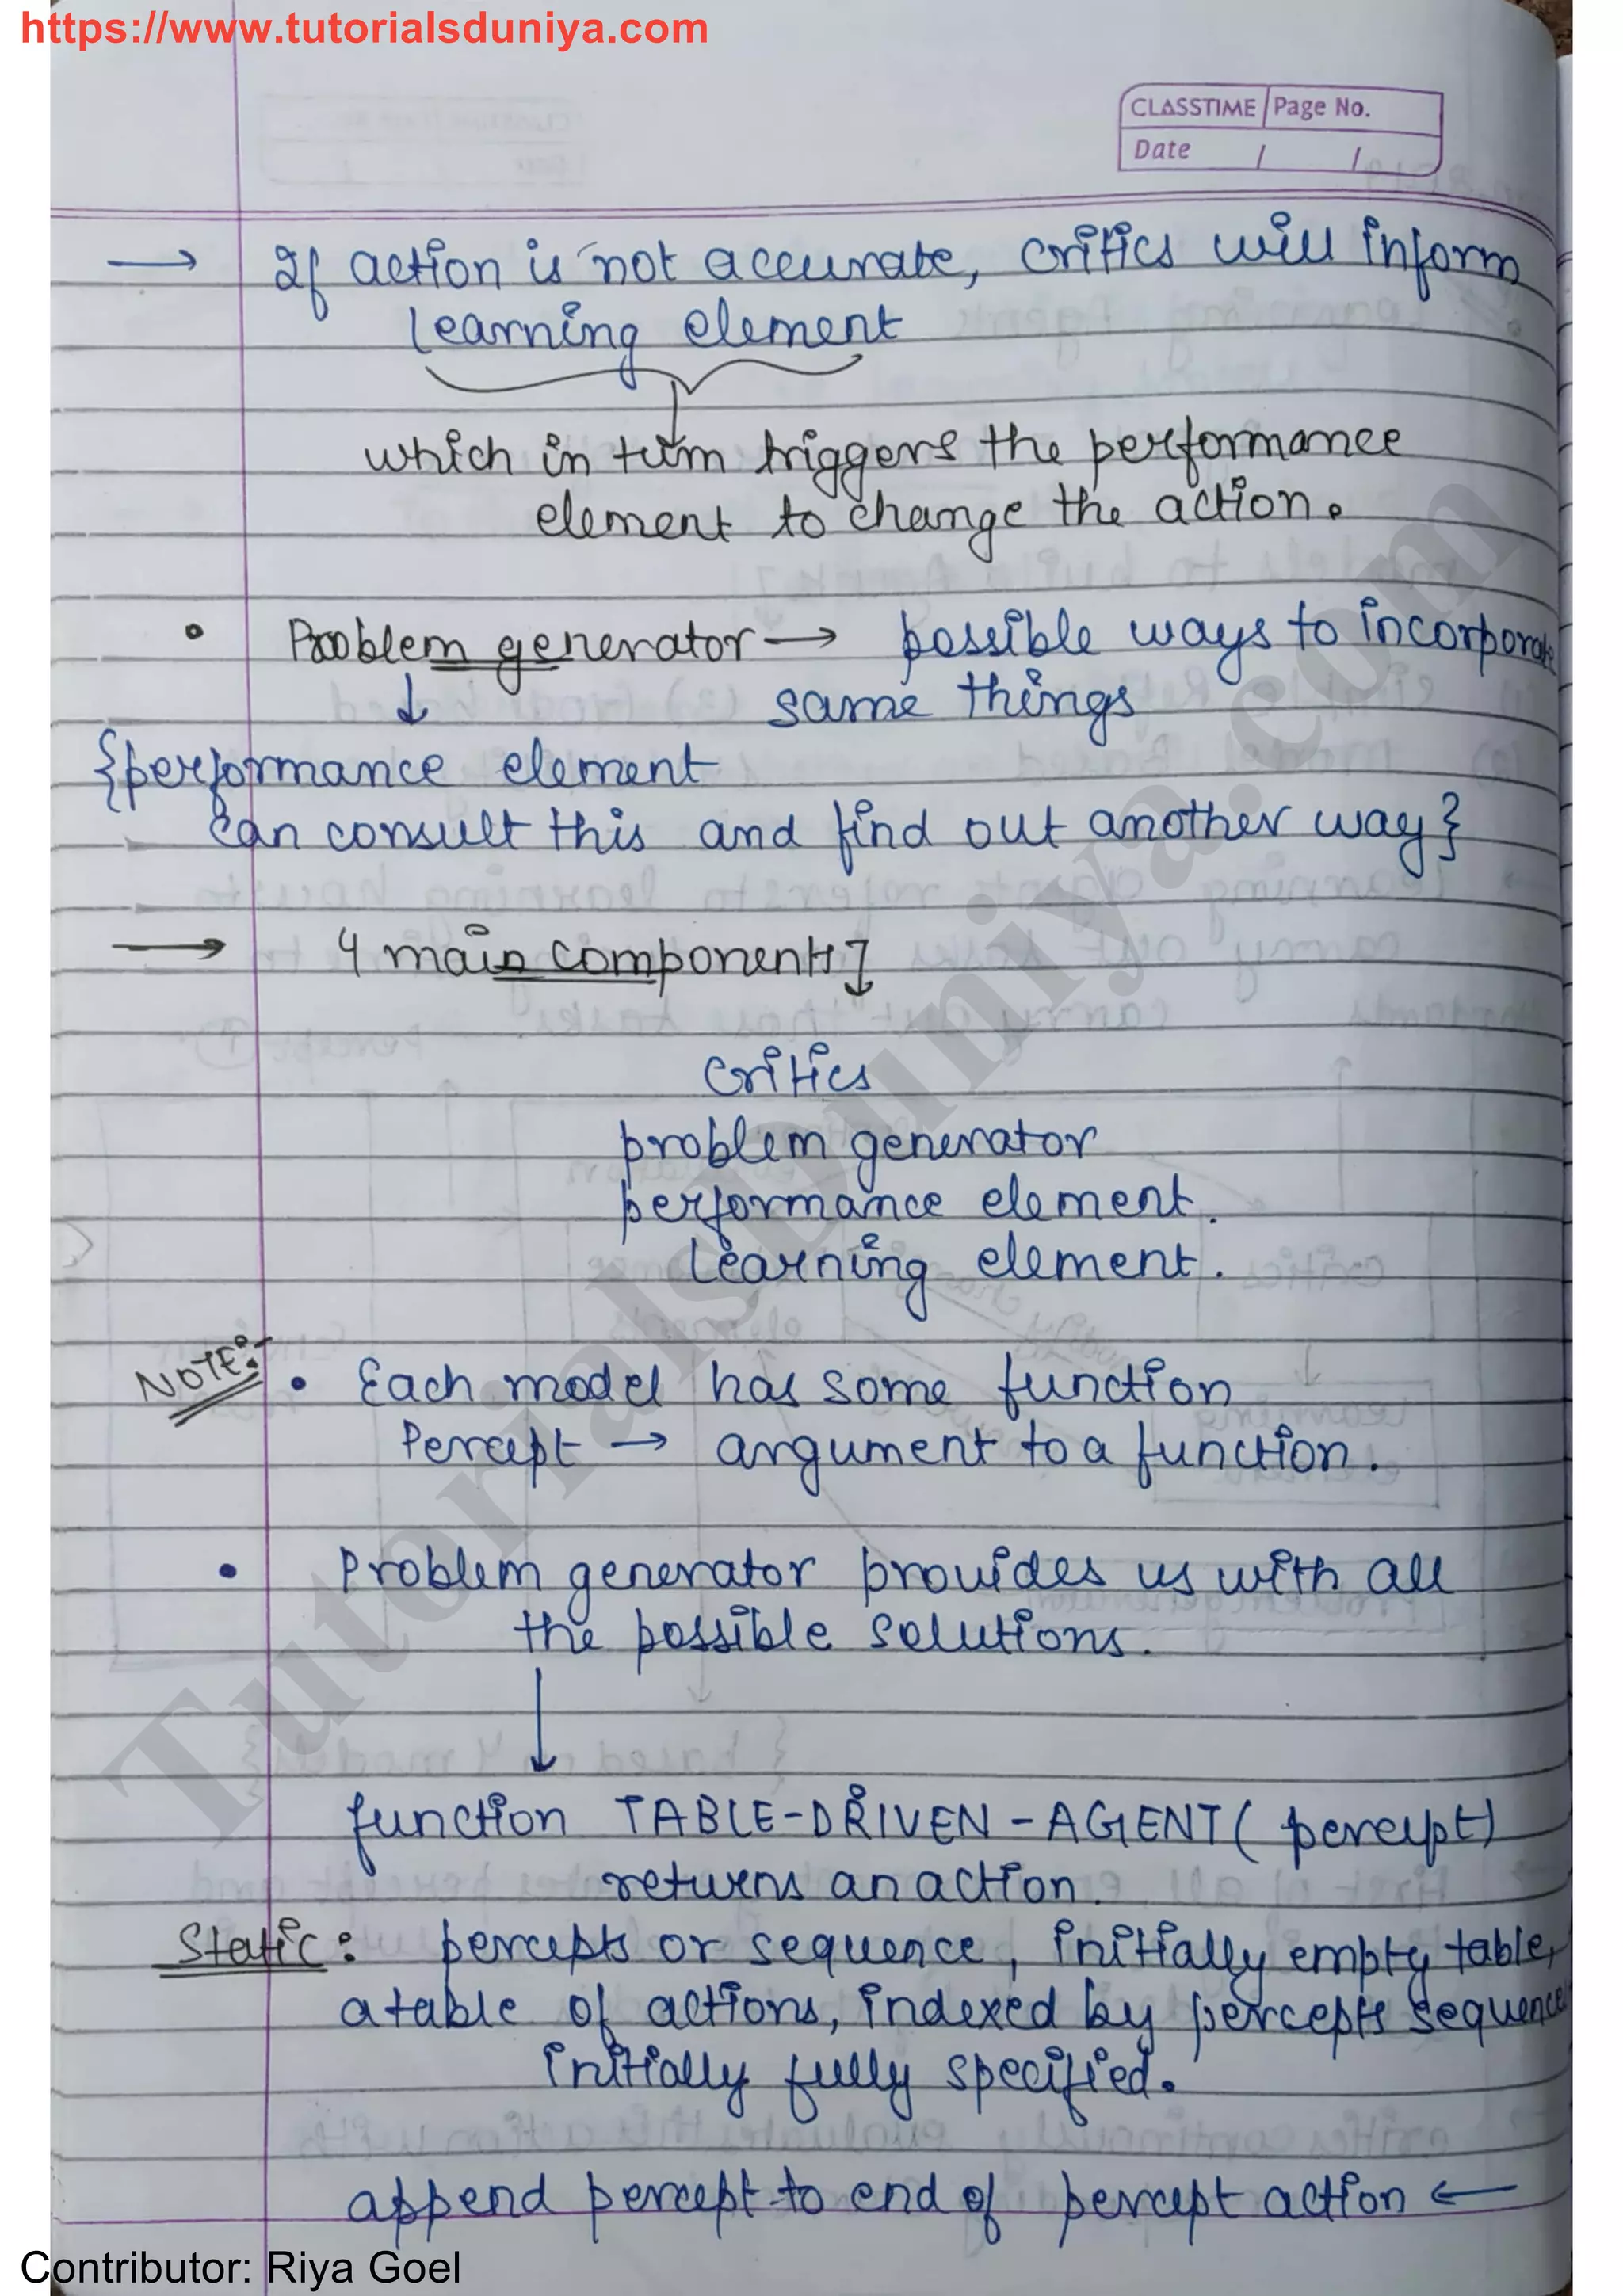 https://www.tutorialsduniya.com
CLASSTIME Page No.
Date / /
→ If action is not accurate, critics will inform
learning element
which in turn triggers the performance
element to change the action.
• Problem generator → possible ways to incorporate
↓ same things
{performance element
can consult this and find out another way}
→ 4 main components]
critics
problem generator
performance element.
Learning element.
NOTE:- • Each model has some function
Percept → argument to a function.
• Problem generator provides us with all
the possible solutions.
↓
function TABLE-DRIVEN-AGENT( percept)
returns an action.
Static: percepts or sequence, initially empty table,
a table of actions, indexed by percepts sequence
initially fully specified.
append percept to end of percept action ←
TutorialsDuniya.com
Contributor: Riya Goel